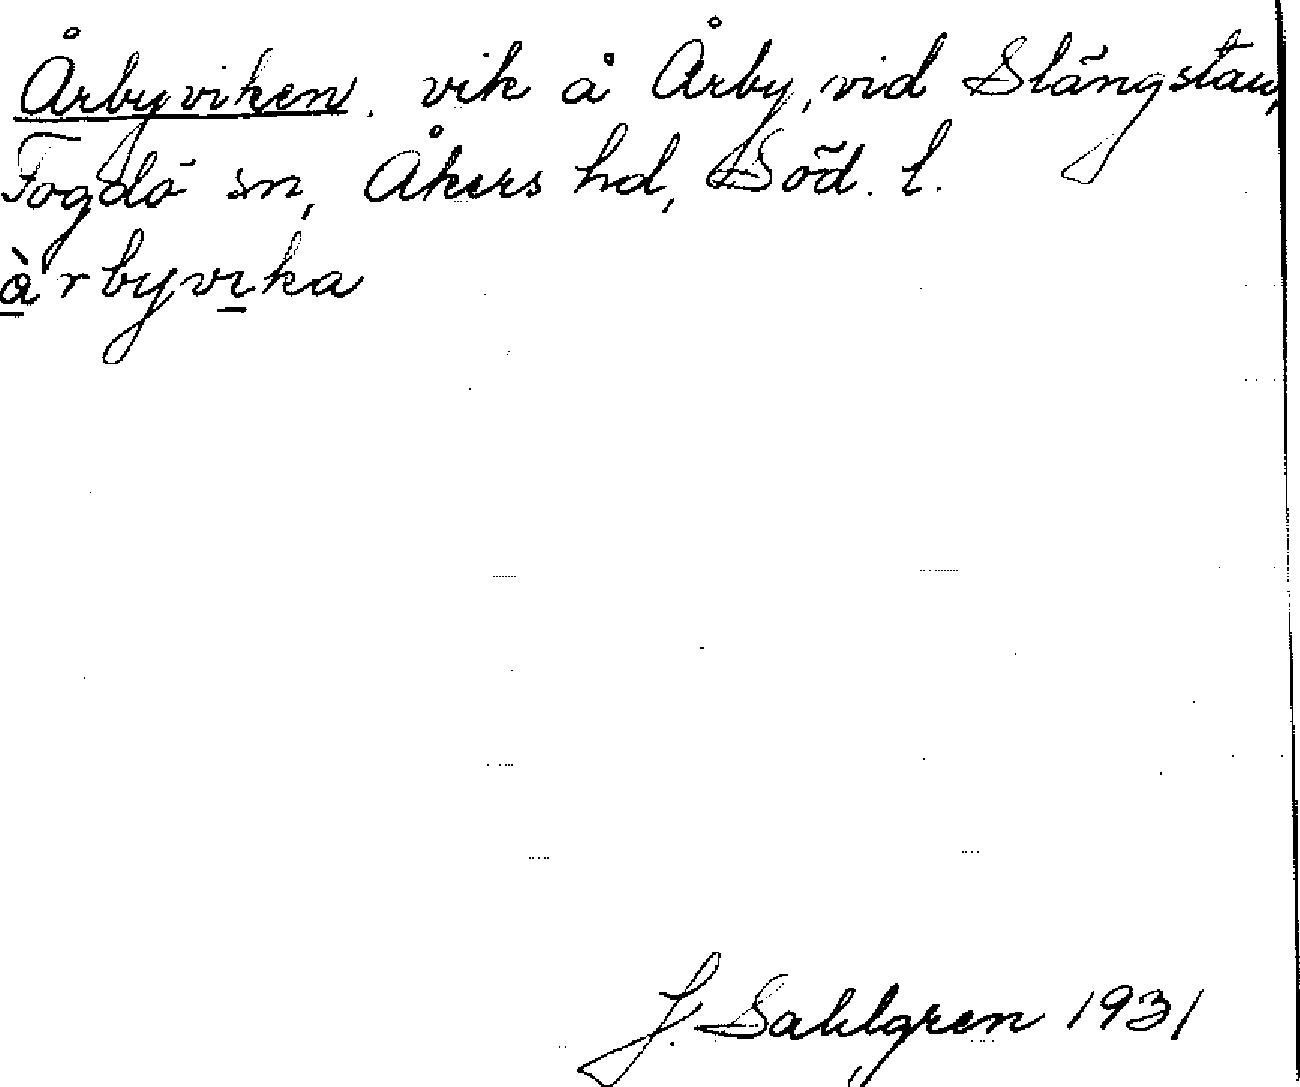 Årbyviken, vik å Årby, vid Slängstav,
Fogdö sn, Åkers hd, Söd. l.
àrbyvika
J. Sahlgren 1931